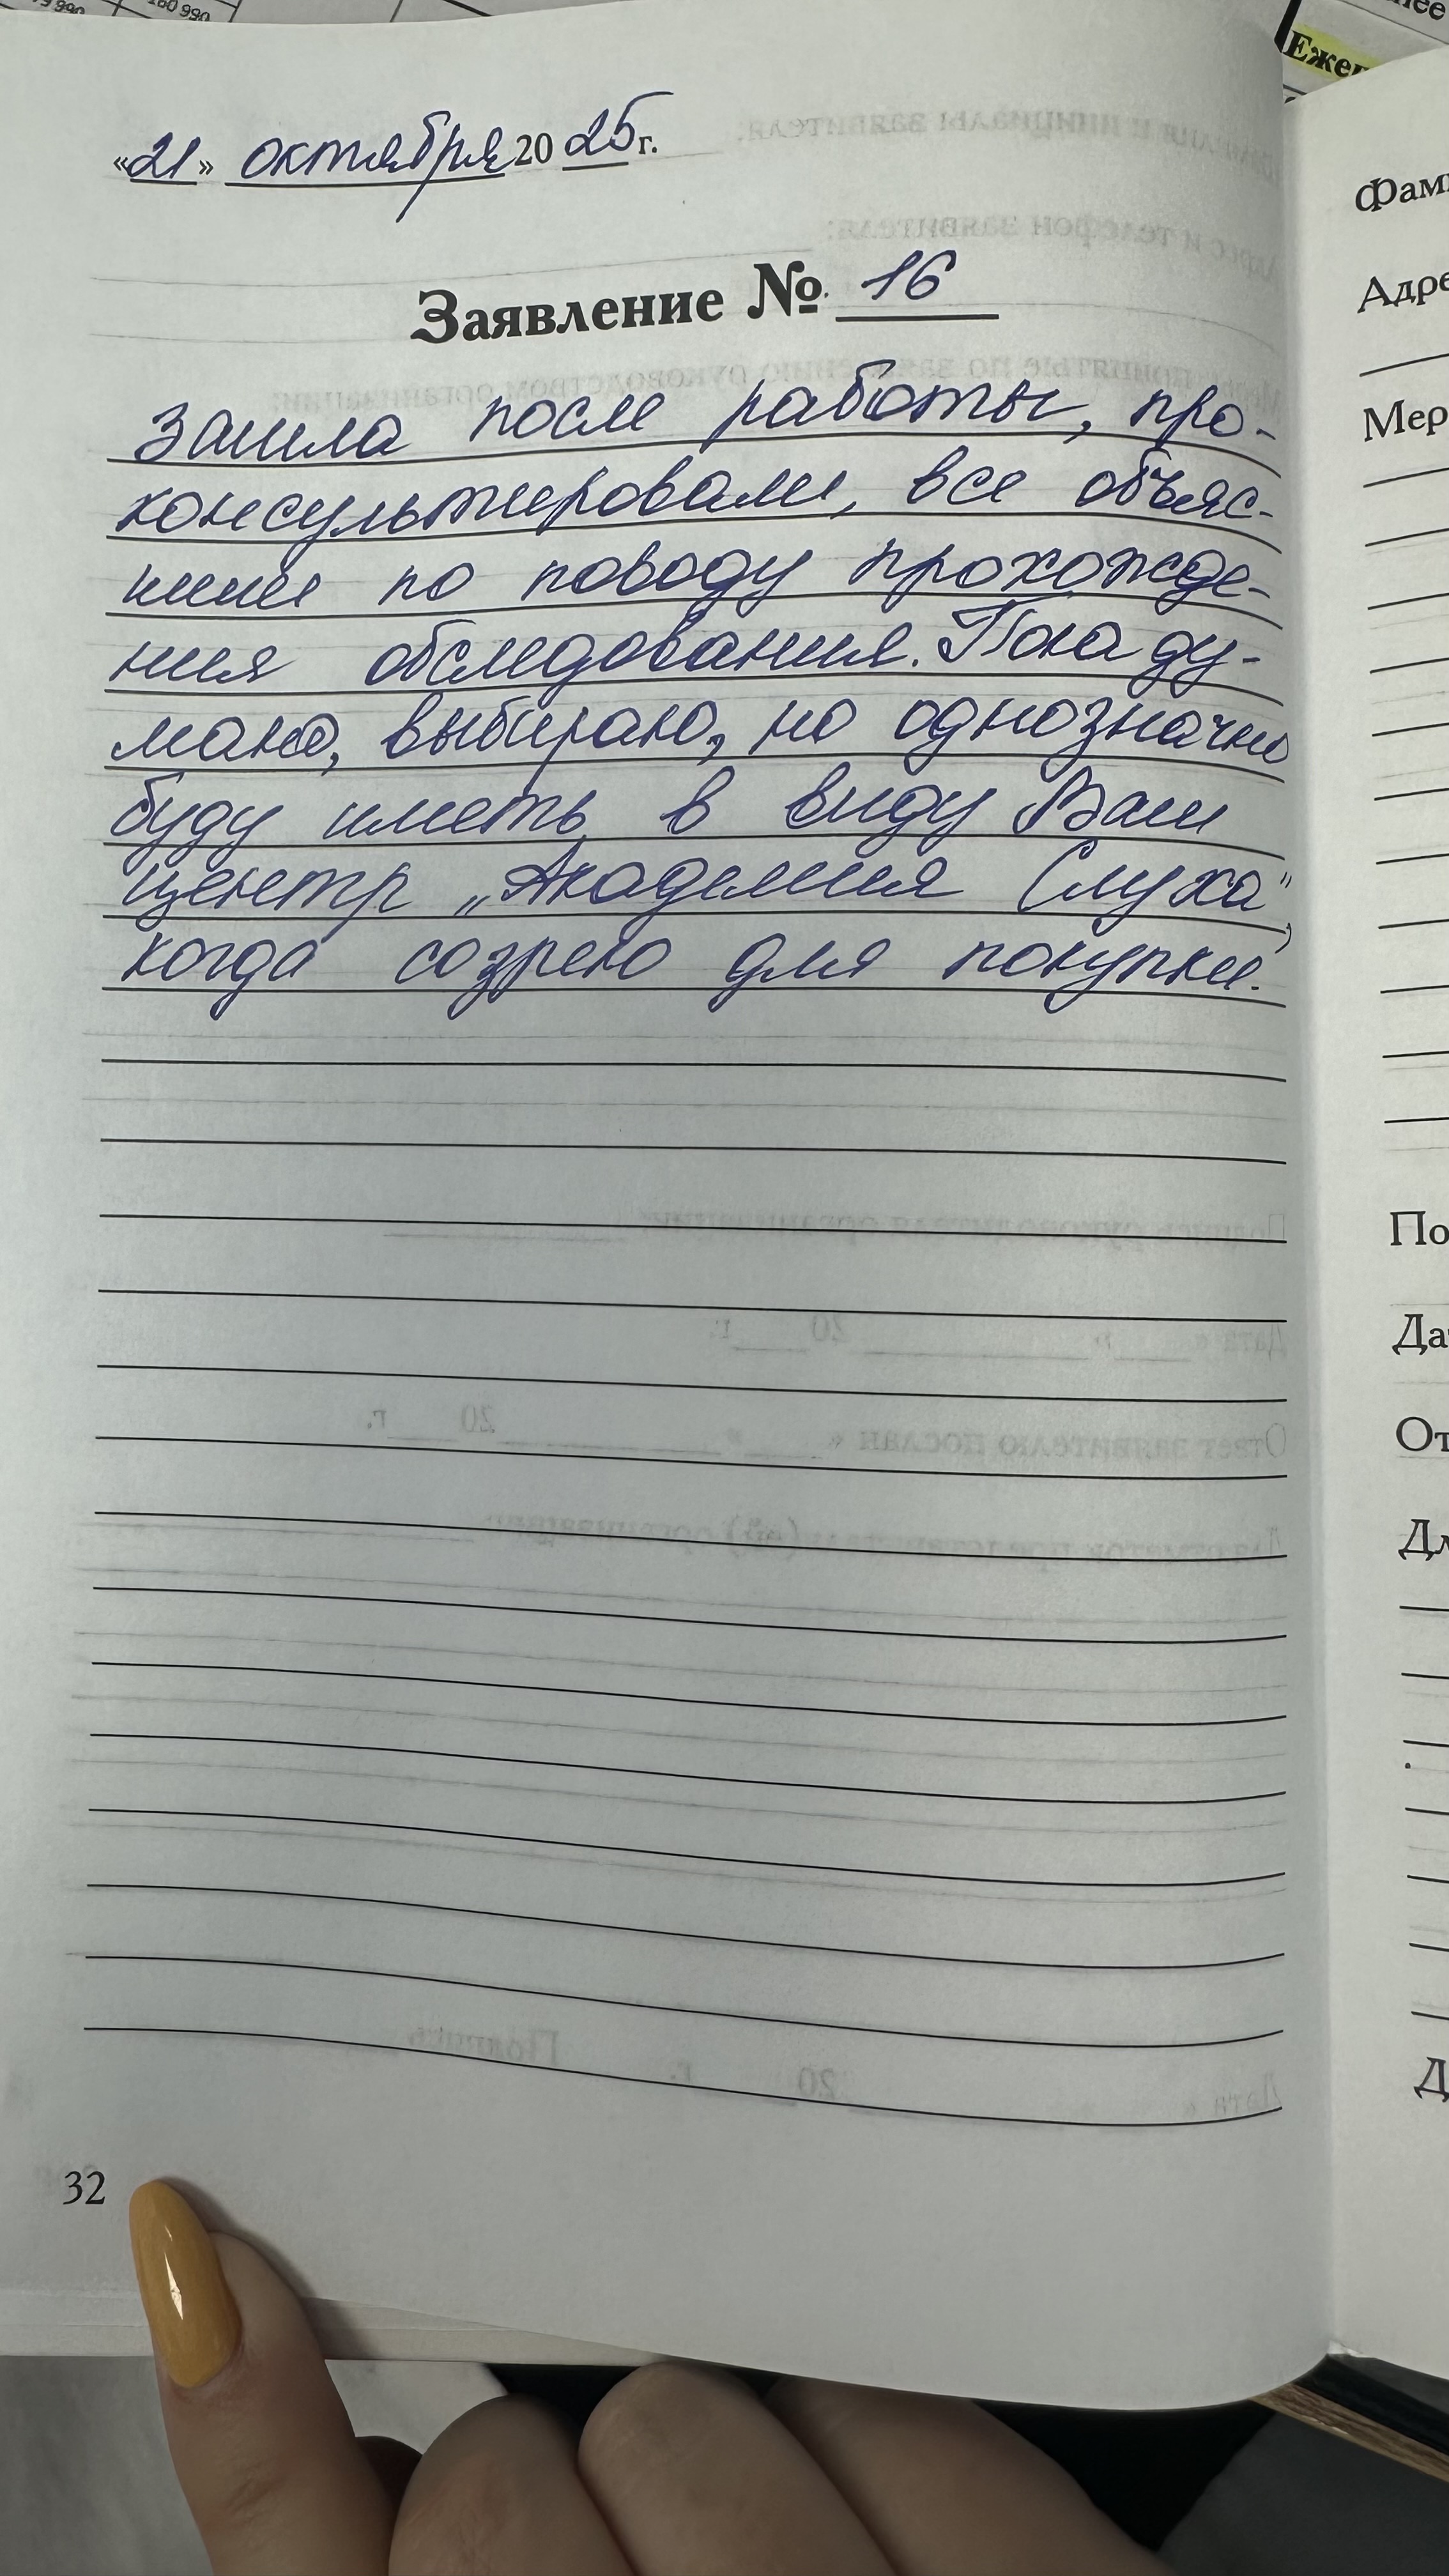 «21» октября 2025г.
Заявление № 16
Зашла после работы, про-
консультировали, все объяс-
нили по поводу прохожде-
ния обследования. Пока ду-
маю, выбираю, но однозначно
буду иметь в виду Ваш
центр „Академия Слуха",
когда созрею для покупки.
32
Ежен
Фами
Адре
Мер
По
Да
От
Дл
Д